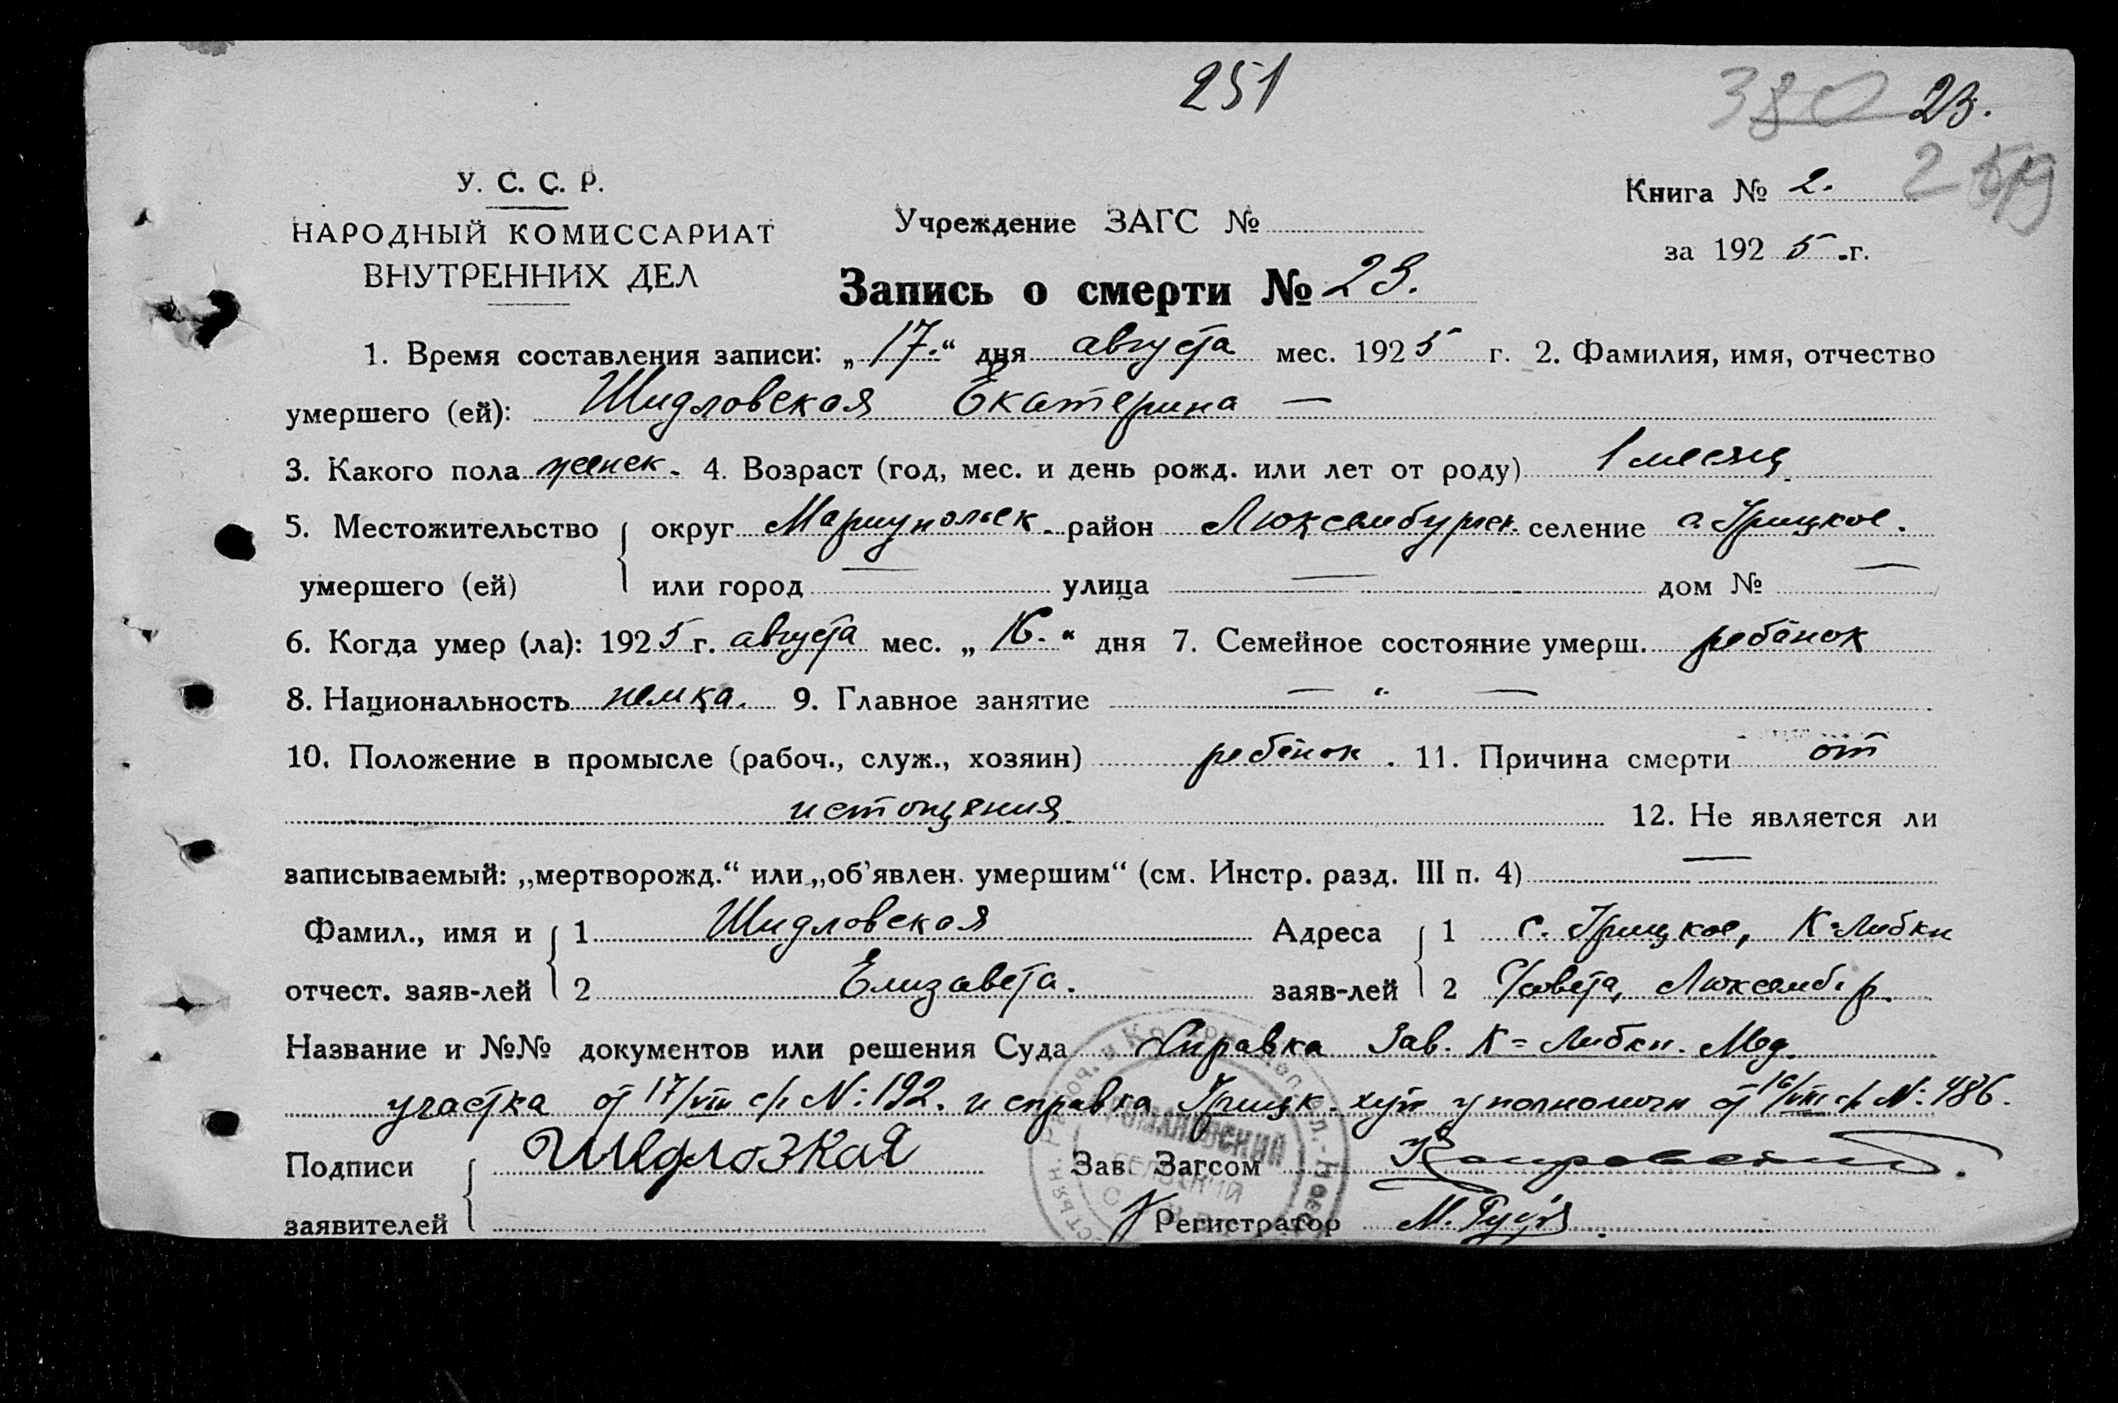 251
380 23.
259
У. С. С. Р.
НАРОДНЫЙ КОМИССАРИАТ
ВНУТРЕННИХ ДЕЛ
Учреждение ЗАГС №
Книга № 2.
за 1925.г.
Запись о смерти № 23.
1. Время составления записи: „17.“ дня августа мес. 1925 г. 2. Фамилия, имя, отчество
умершего (ей): Шидловская Екатерина —
3. Какого пола женск. 4. Возраст (год, мес. и день рожд. или лет от роду) 1 месяц.
5. Местожительство округ Мариупольск. район Люксембургск. селение с. Грицкое.
умершего (ей) или город — улица — дом № —
6. Когда умер (ла): 1925 г. августа мес. „16.“ дня 7. Семейное состояние умерш. ребёнок
8. Национальность немка. 9. Главное занятие — „ —
10. Положение в промысле (рабоч., служ., хозяин) ребёнок. 11. Причина смерти от
истощения. 12. Не является ли
записываемый: „мертворожд.“ или „об'явлен. умершим“ (см. Инстр. разд. III п. 4) —
Фамил., имя и 1 Шидловская Адреса 1 с. Грицкое, К-Либкн
отчест. заяв-лей 2 Елизавета. заяв-лей 2 С/совета, Люксемб. р.
Название и №№ документов или решения Суда Справка Зав. К=Либкн. Мед.
участка от 17/VIII с/г №: 192. и справка Грицк. хут уполномочн от 16/VIII с/г №: 486.
Подписи Шидлозкая Зав. Загсом
заявителей Регистратор М.